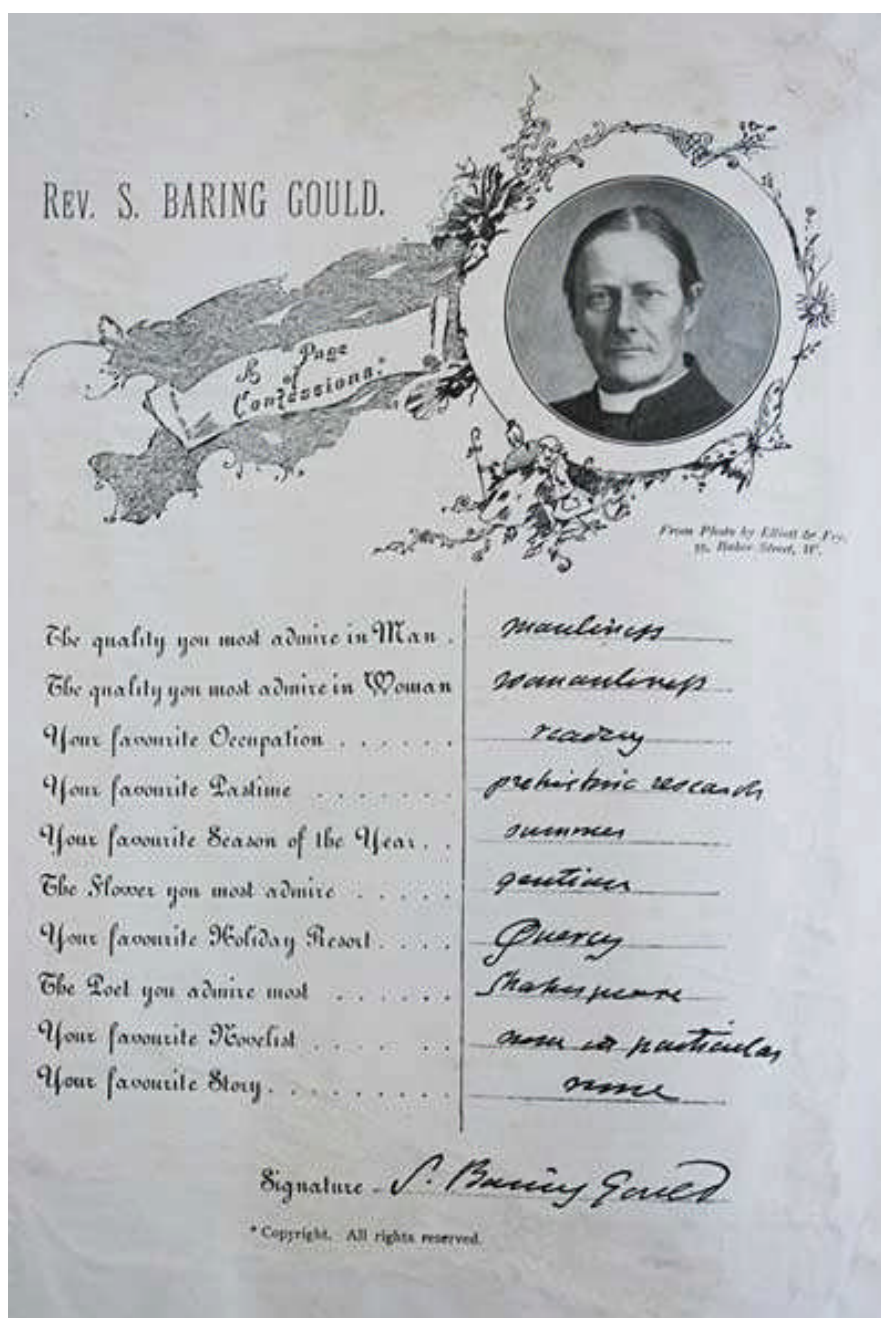 REV. S. BARING GOULD.
"A Page
of
Confessions."*
From Photo by Elliott & Fry,
55, Baker Street, W.
The quality you most admire in Man . manliness
The quality you most admire in Woman womanliness
Your favourite Occupation . . . . . . reading
Your favourite Pastime . . . . . . . prehistoric research
Your favourite Season of the Year . . summer
The Flower you most admire . . . . . gentian
Your favourite Holiday Resort . . . . Quercy
The Poet you admire most . . . . . . Shakespeare
Your favourite Novelist . . . . . . none in particular
Your favourite Story . . . . . . . . . none
Signature - S. Baring Gould
* Copyright. All rights reserved.